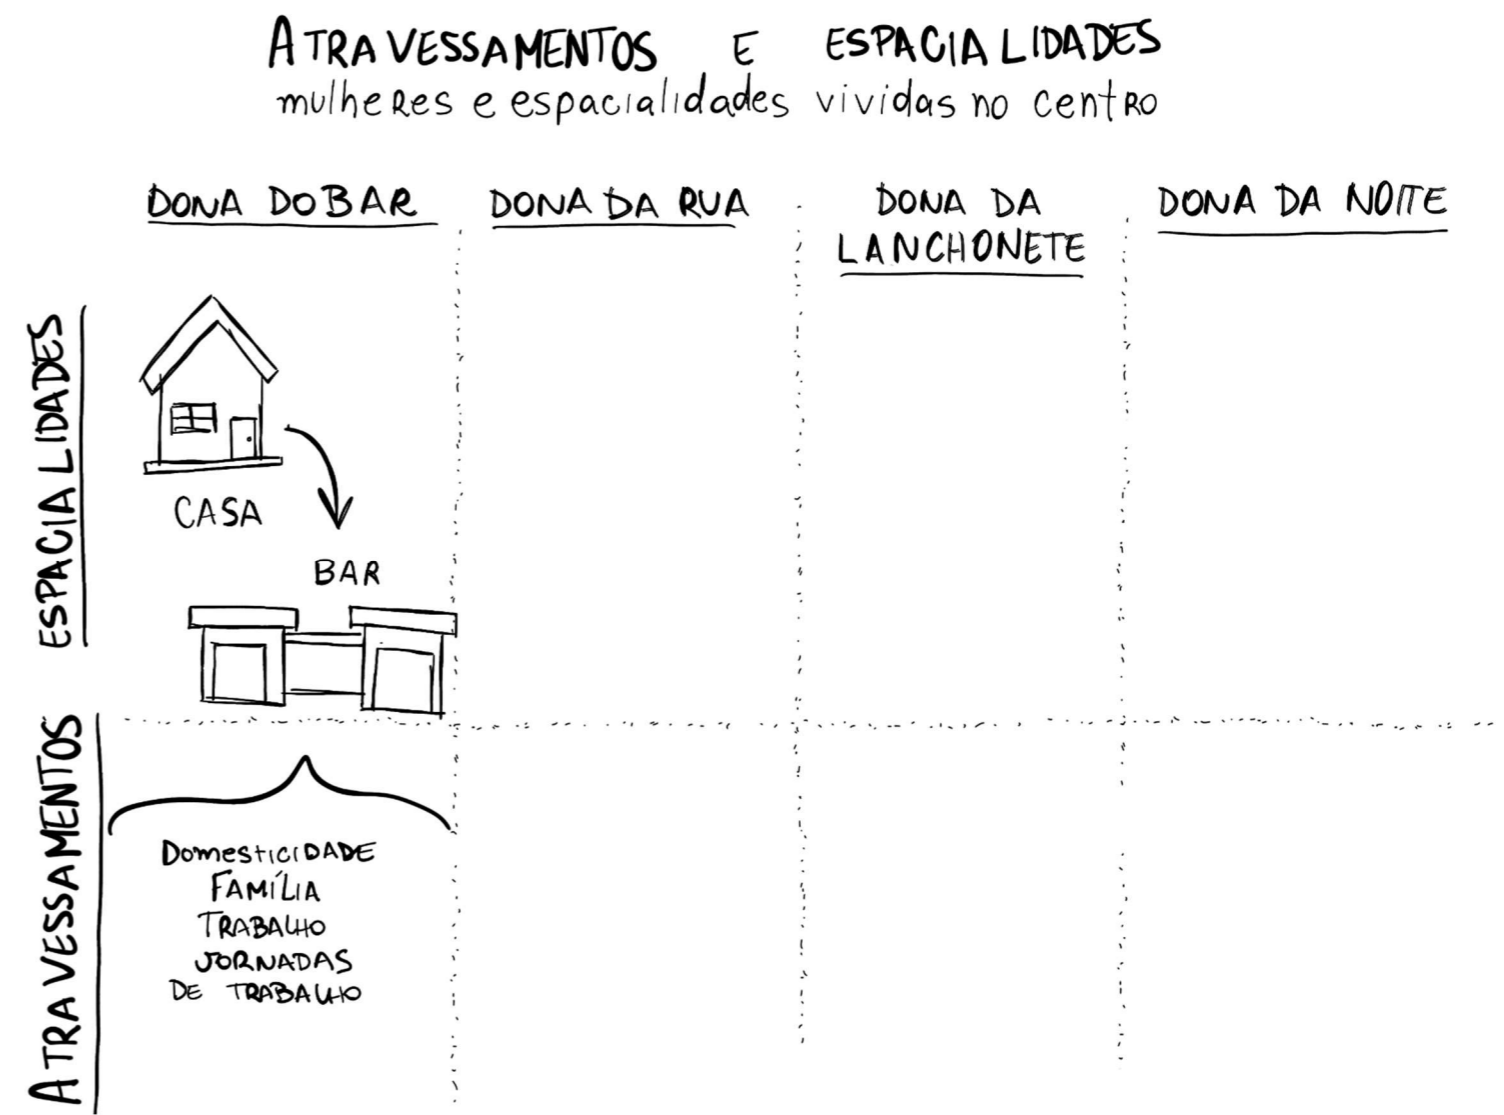 ATRAVESSAMENTOS E ESPACIALIDADES
mulheres e espacialidades vividas no centro
DONA DO BAR
DONA DA RUA
DONA DA
LANCHONETE
DONA DA NOITE
ESPACIALIDADES
CASA
BAR
ATRAVESSAMENTOS
DOMESTICIDADE
FAMÍLIA
TRABALHO
JORNADAS
DE TRABALHO